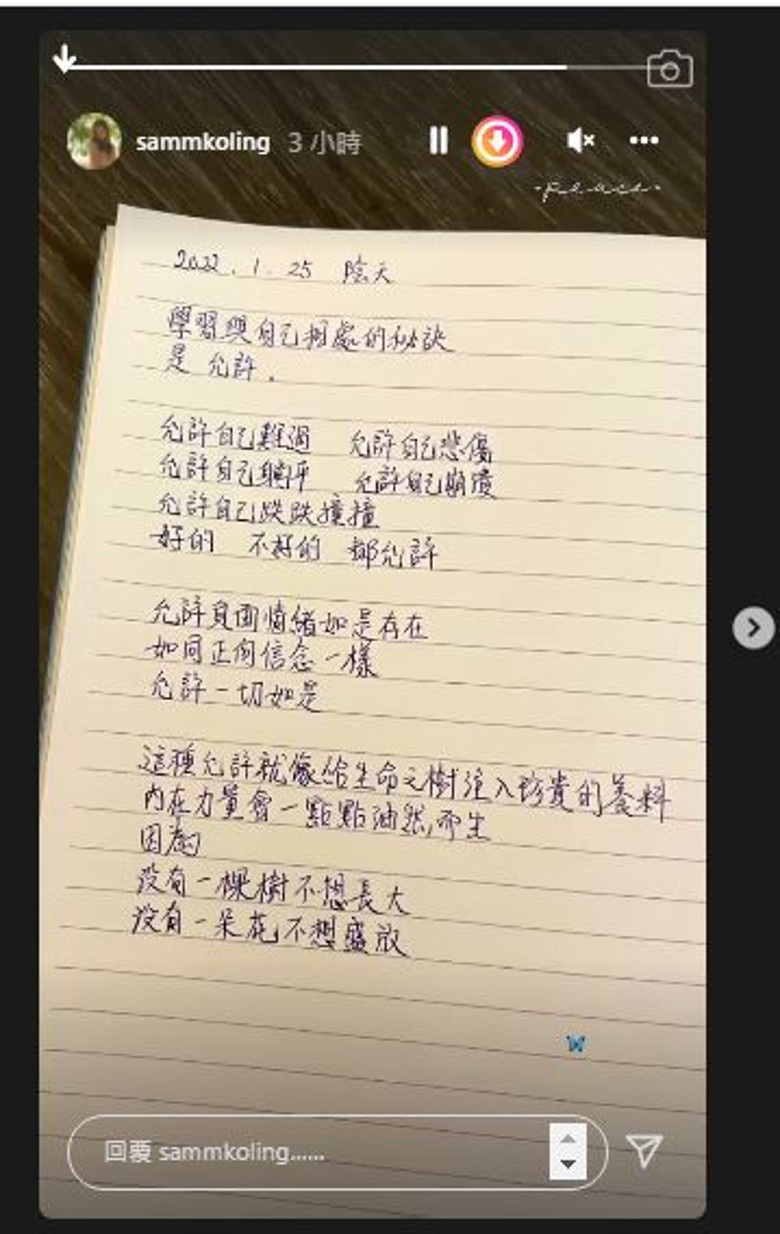 sammkoling 3 小時
·Peace·
2022.1.25 陰天
學習與自己相處的秘訣
是 允許.
允許自己難過 允許自己悲傷
允許自己躺平 允許自己崩潰
允許自己跌跌撞撞
好的 不好的 都允許
允許負面情緒如是存在
如同正向信念一樣
允許一切如是
這種允許就像給生命之樹注入珍貴的養料
內在力量會一點點油然而生
因為
沒有一棵樹不想長大
沒有一朵花不想盛放
回覆 sammkoling......